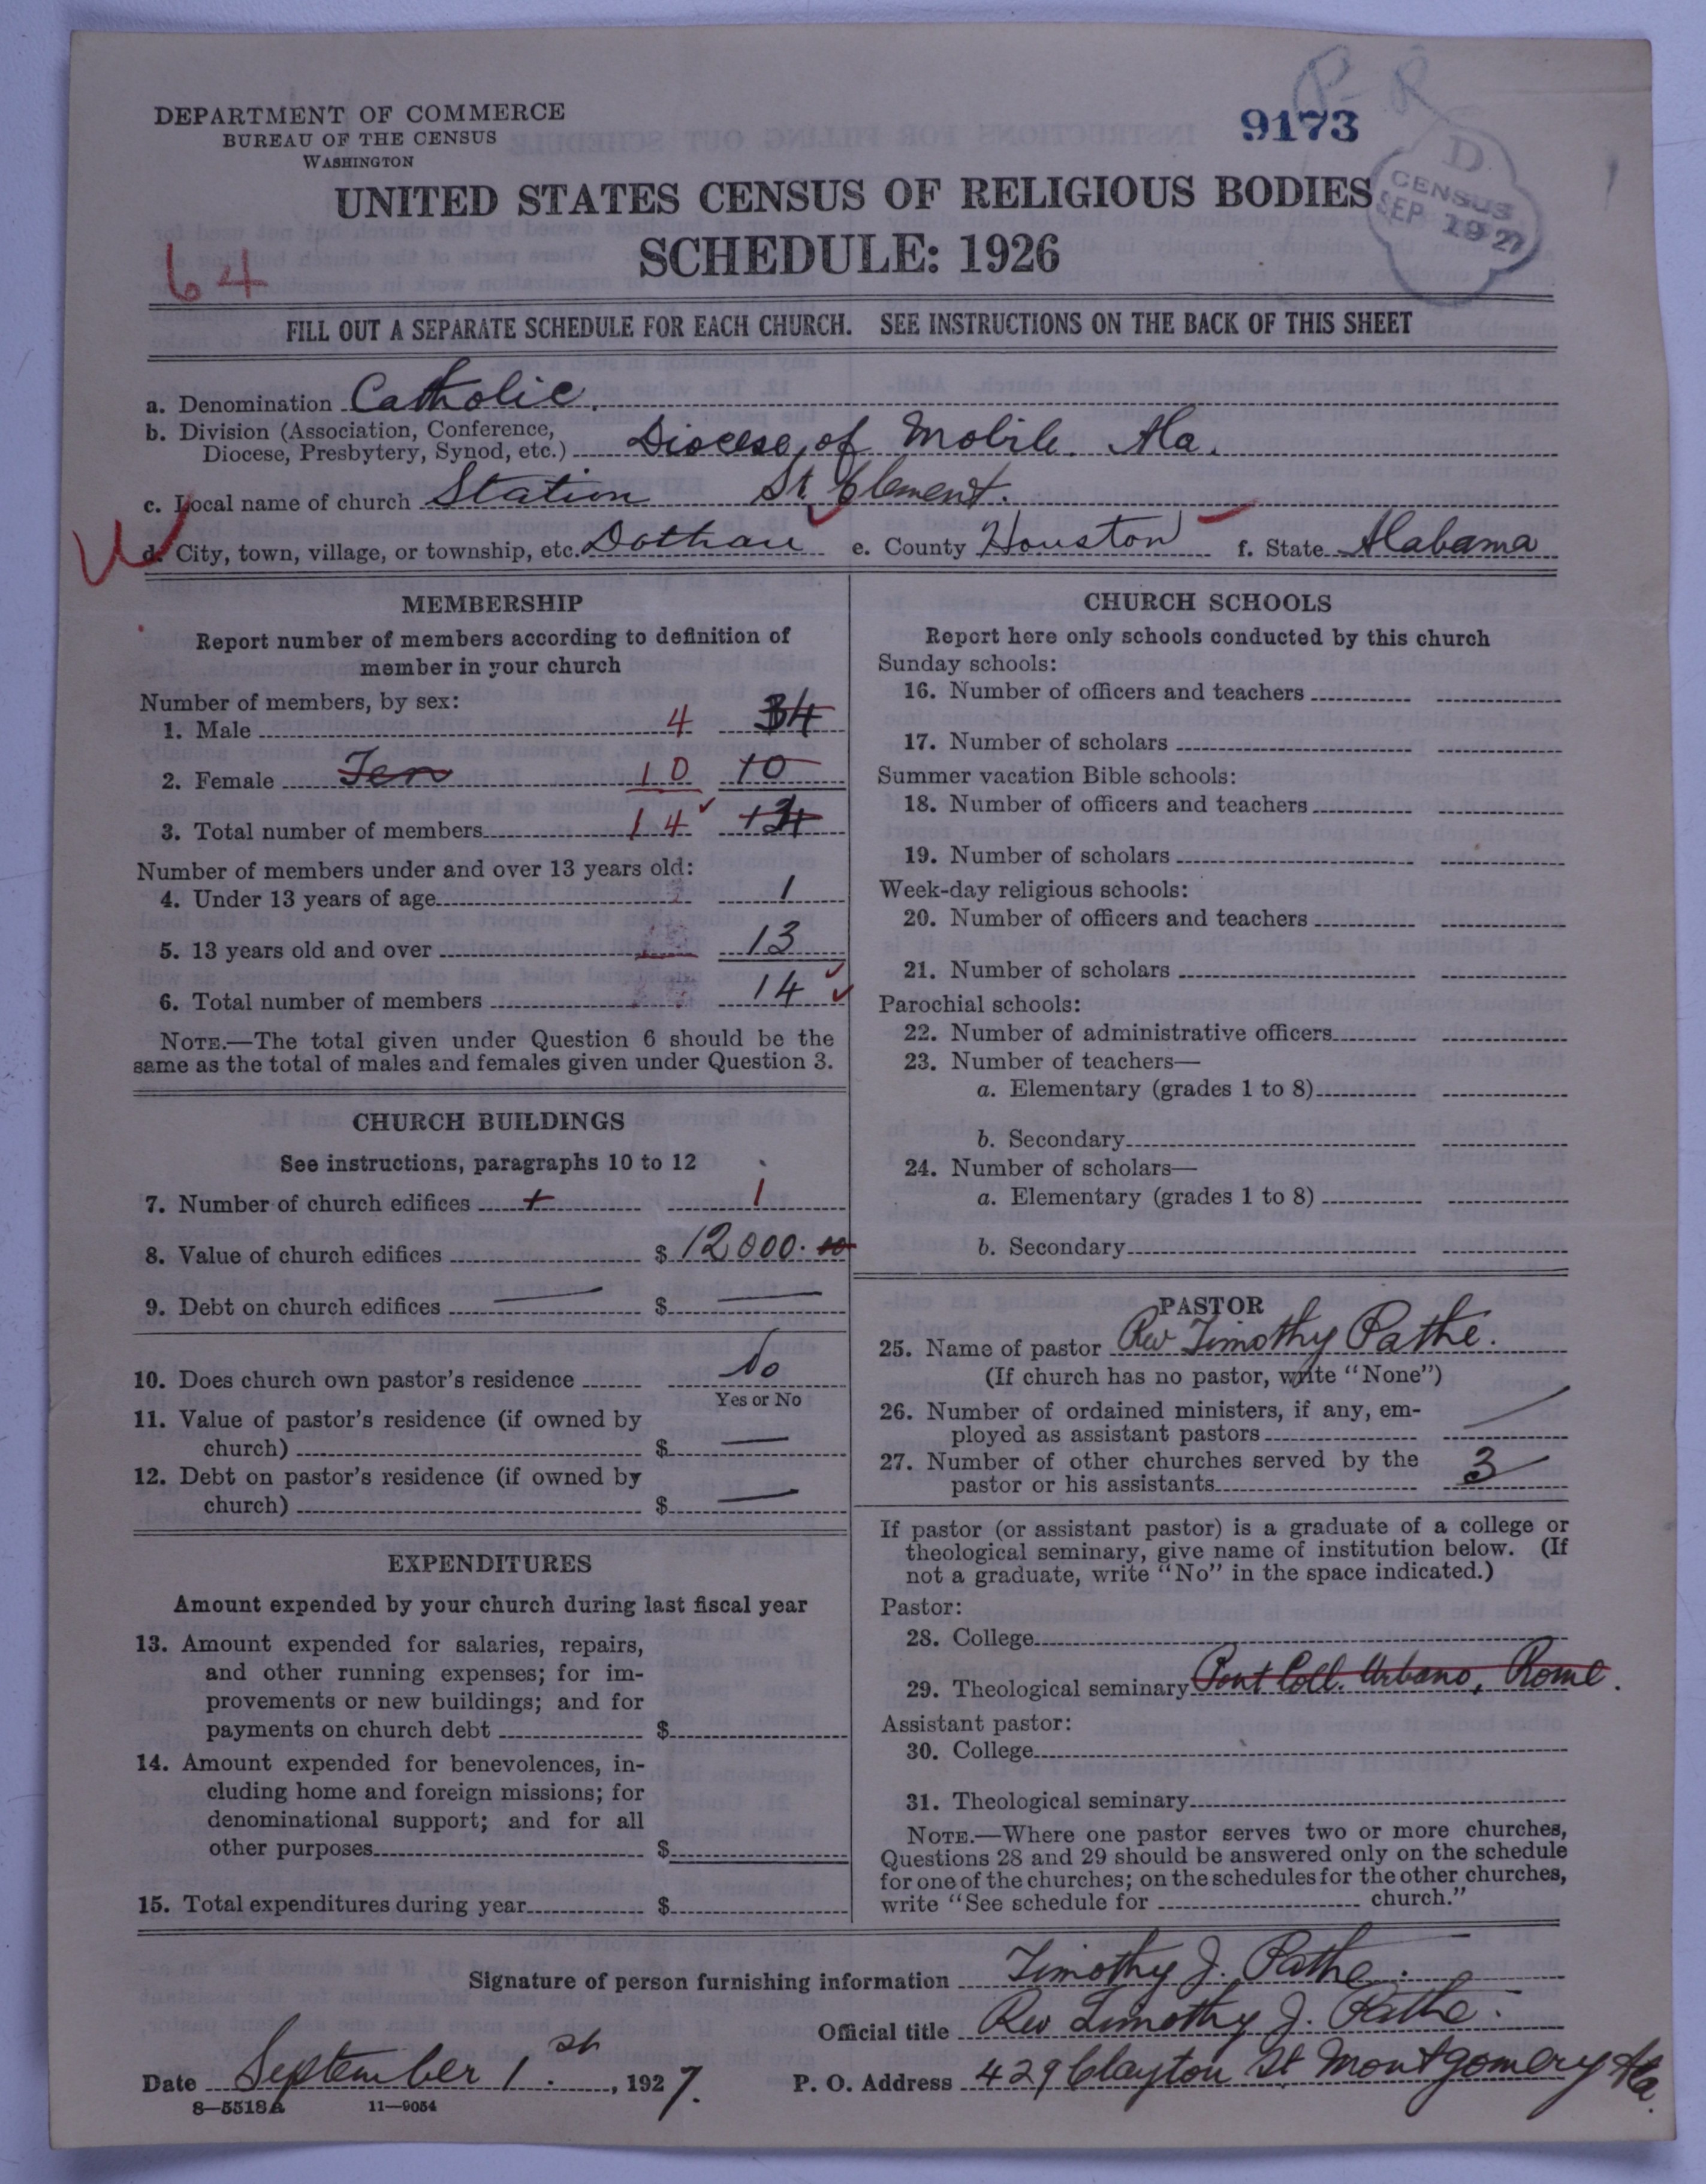 P R
DEPARTMENT OF COMMERCE
BUREAU OF THE CENSUS
WASHINGTON
9173
D.
CENSUS
SEP 1927
UNITED STATES CENSUS OF RELIGIOUS BODIES
SCHEDULE: 1926
64
FILL OUT A SEPARATE SCHEDULE FOR EACH CHURCH. SEE INSTRUCTIONS ON THE BACK OF THIS SHEET
a. Denomination Catholic.
b. Division (Association, Conference,
Diocese, Presbytery, Synod, etc.) Diocese of Mobile. Ala.
c. Local name of church Station St. Clement.
W
d. City, town, village, or township, etc. Dothan e. County Houston f. State Alabama
MEMBERSHIP
Report number of members according to definition of
member in your church
Number of members, by sex:
1. Male 4
2. Female Ten 10 10
3. Total number of members 14
Number of members under and over 13 years old:
4. Under 13 years of age 1
5. 13 years old and over 13
6. Total number of members 14
NOTE.—The total given under Question 6 should be the
same as the total of males and females given under Question 3.
CHURCH BUILDINGS
See instructions, paragraphs 10 to 12
7. Number of church edifices 1
8. Value of church edifices $ 12000.
9. Debt on church edifices — $ —
10. Does church own pastor's residence No
Yes or No
11. Value of pastor's residence (if owned by
church) $ —
12. Debt on pastor's residence (if owned by
church) $ —
EXPENDITURES
Amount expended by your church during last fiscal year
13. Amount expended for salaries, repairs,
and other running expenses; for im-
provements or new buildings; and for
payments on church debt $
14. Amount expended for benevolences, in-
cluding home and foreign missions; for
denominational support; and for all
other purposes $
15. Total expenditures during year $
CHURCH SCHOOLS
Report here only schools conducted by this church
Sunday schools:
16. Number of officers and teachers
17. Number of scholars
Summer vacation Bible schools:
18. Number of officers and teachers
19. Number of scholars
Week-day religious schools:
20. Number of officers and teachers
21. Number of scholars
Parochial schools:
22. Number of administrative officers
23. Number of teachers—
a. Elementary (grades 1 to 8)
b. Secondary
24. Number of scholars—
a. Elementary (grades 1 to 8)
b. Secondary
PASTOR
25. Name of pastor Rev Timothy Pathe.
(If church has no pastor, write "None")
26. Number of ordained ministers, if any, em-
ployed as assistant pastors
27. Number of other churches served by the
pastor or his assistants 3
If pastor (or assistant pastor) is a graduate of a college or
theological seminary, give name of institution below. (If
not a graduate, write "No" in the space indicated.)
Pastor:
28. College
29. Theological seminary Pont Coll. Urbano, Rome.
Assistant pastor:
30. College
31. Theological seminary
NOTE.—Where one pastor serves two or more churches,
Questions 28 and 29 should be answered only on the schedule
for one of the churches; on the schedules for the other churches,
write "See schedule for church."
Signature of person furnishing information Timothy J. Pathe.
Official title Rev Timothy J. Pathe.
Date September 1.st, 1927. P. O. Address 429 Clayton St Montgomery Ala.
8—5518A 11—9054